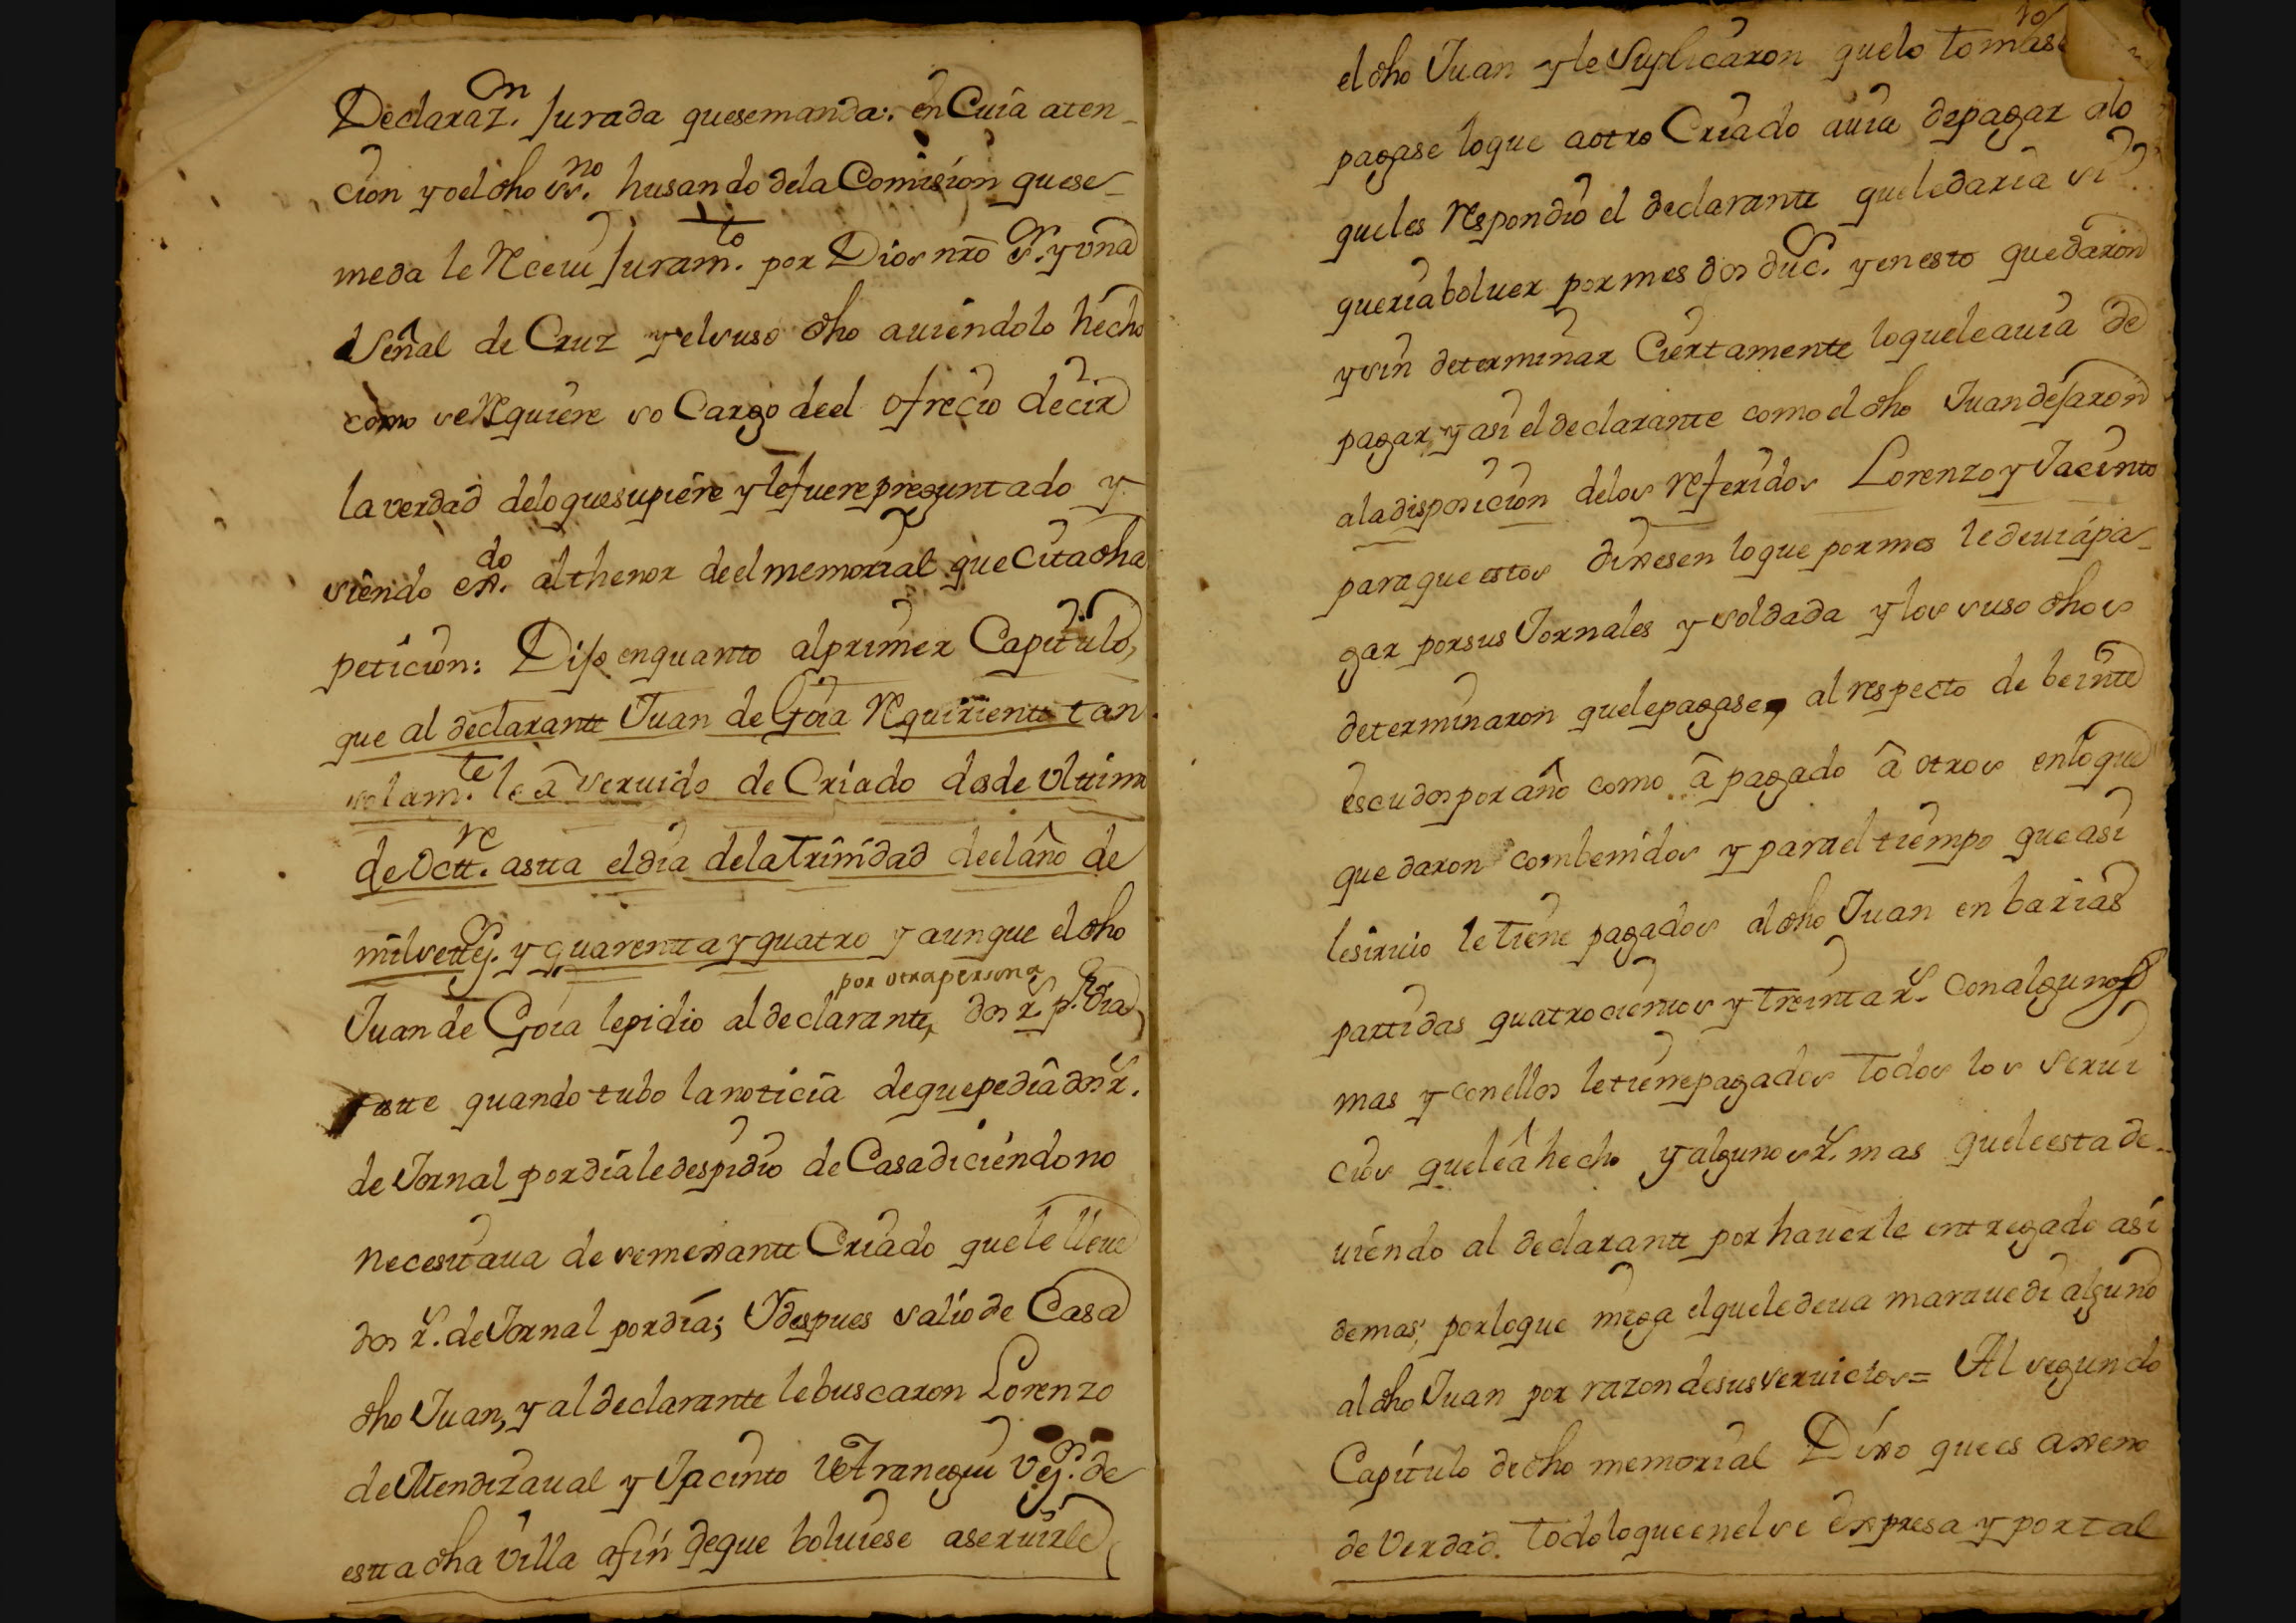 Declaraz.on Jurada quesemanda: en Cuia aten-
cion yo el dho ss.no husando dela Comision quese-
meda le Receui Juram.to por Dios nrō S.r y vna
Señal de Cruz y el suso dho auiendolo hecho
como se Requiere so Cargo deel ofrecio decir
la verdad delo quesupiere y lefuere preguntado y
siendo ex.do al thenor de el memorial que Cita dha
peticion: Dijo enquanto al primer Capitulo,
que al declarante Juan de Goia Requiriente tan
solam.te le â seruido de Criado desde vltimo
de Octt.re astta el dia dela Trinidad deel año de
mil settez.s y quarenta y quatro y aunque el dho
por otra persona
Juan de Goia lepidio al declarante, dos r.s p.r dia
este quando tubo la noticia dequepedia dos r.s
de Jornal por dia le despidio de Casa diciendo no
necesitaua de semexante Criado que le lleue
dos r.s de Jornal por dia; Y despues salio de Casa
dho Juan, y al declarante le buscaron Lorenzo
de Mendizaual y Jacinto de Aranegui vez.s de
estta dha villa afin deque boluiese aseruirle
el dho Juan y le Suplicaron quelo tomase
pagase loque aotro Criado auia depagar alo
queles respondio el declarante queledaria si
queria boluer por mes dos duc.s y en esto quedaron
y sin determinar Ciertamente loqueleauia de
pagar, y asi el declarante como el dho Juan dejaron
ala disposicion delos referidos Lorenzo y Jacinto
para que estos dixesen loque por mes le deuia pa-
gar porsus Jornales y soldada y los suso dhos
determinaron quelepagase, al respecto de beinte
escudos por año como â pagado â otros enloque
quedaron combenidos y para el tiempo que asi
lesiruio le tiene pagados al dho Juan en barias
partidas quatrocientos y treinta r.s con algunos
mas y con ellos le tiene pagados todos los serui
cios queleâ hecho y algunos r.s mas queleesta de-
uiendo al declarante por hauerle entregado asi
demas; porloque niega el quele deua marauedi alguno
al dho Juan por razon desus seruicios = Al segundo
Capitulo de dho memorial Dixo que es axeno
de Verdad. todo loqueenel se expresa y por tal